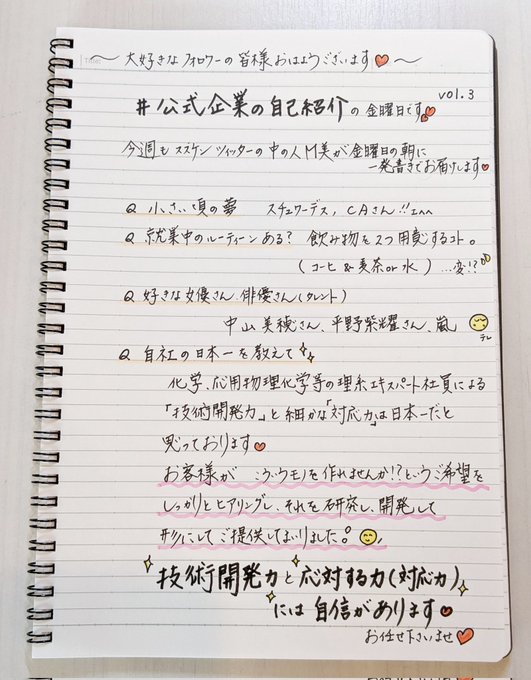 〜大好きなフォロワーの皆様おはようございます❤〜
vol.3
#公式企業の自己紹介の金曜日です❤
今週もススケンツイッターの中の人M美が金曜日の朝に
一発書きでお届けします❤
Q 小さい頃の夢 スチュワーデス、CAさん!!
Q 就業中のルーティーンある? 飲み物を2つ用意するコト。
(コーヒー&麦茶or水)…変!?
Q 好きな女優さん俳優さん(タレント)
中山美穂さん、平野紫耀さん、嵐
テレ
Q 自社の日本一を教えて
化学、応用物理化学等の理系エキスパート社員による
「技術開発力」と細かな「対応力」は日本一だと
思っております❤
お客様が こういうモノを作れませんか!?というご希望を
しっかりとヒアリングし、それを研究し、開発して
形にしてご提供してまいりました。
技術開発力と応対する力(対応力)
には自信があります❤
お任せ下さいませ❤